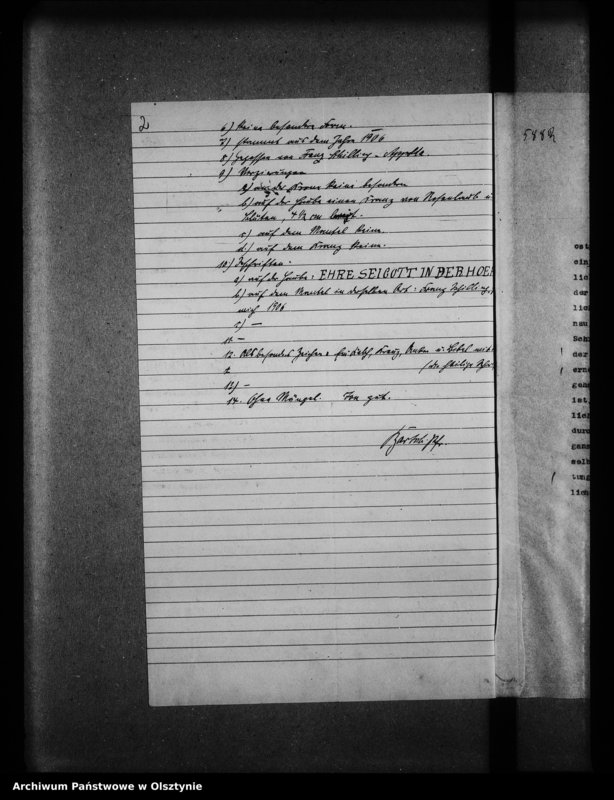 2
6) Keine besondere Form.
7) stammt aus dem Jahre 1906
8) Gegossen von Franz Schilling - Apolda.
9) Verzierungen
a) an der Krone keine besondern
b) auf der Haube einen Kranz von Rosenlaub u
Blüten, 4½ cm
c) auf dem Mantel keine.
d) auf dem Kranz keine.
10) Inschriften.
a) auf der Haube: EHRE SEI GOTT IN DER HOEH
b) auf dem Mantel in derselben Art: Franz Schilling,
mich 1906
c) —
11 —
12. Als besondere Zeichen: Kreuz, Anker u.
die heilige
13) —
14. Ohne Mängel. Ton gut.
Pfr.
5882
ost
ein
lic
der
lic
nau
Sch
der
ern
gen
ist
lic
dur
gan
sel
tun
lic
Archiwum Państwowe w Olsztynie